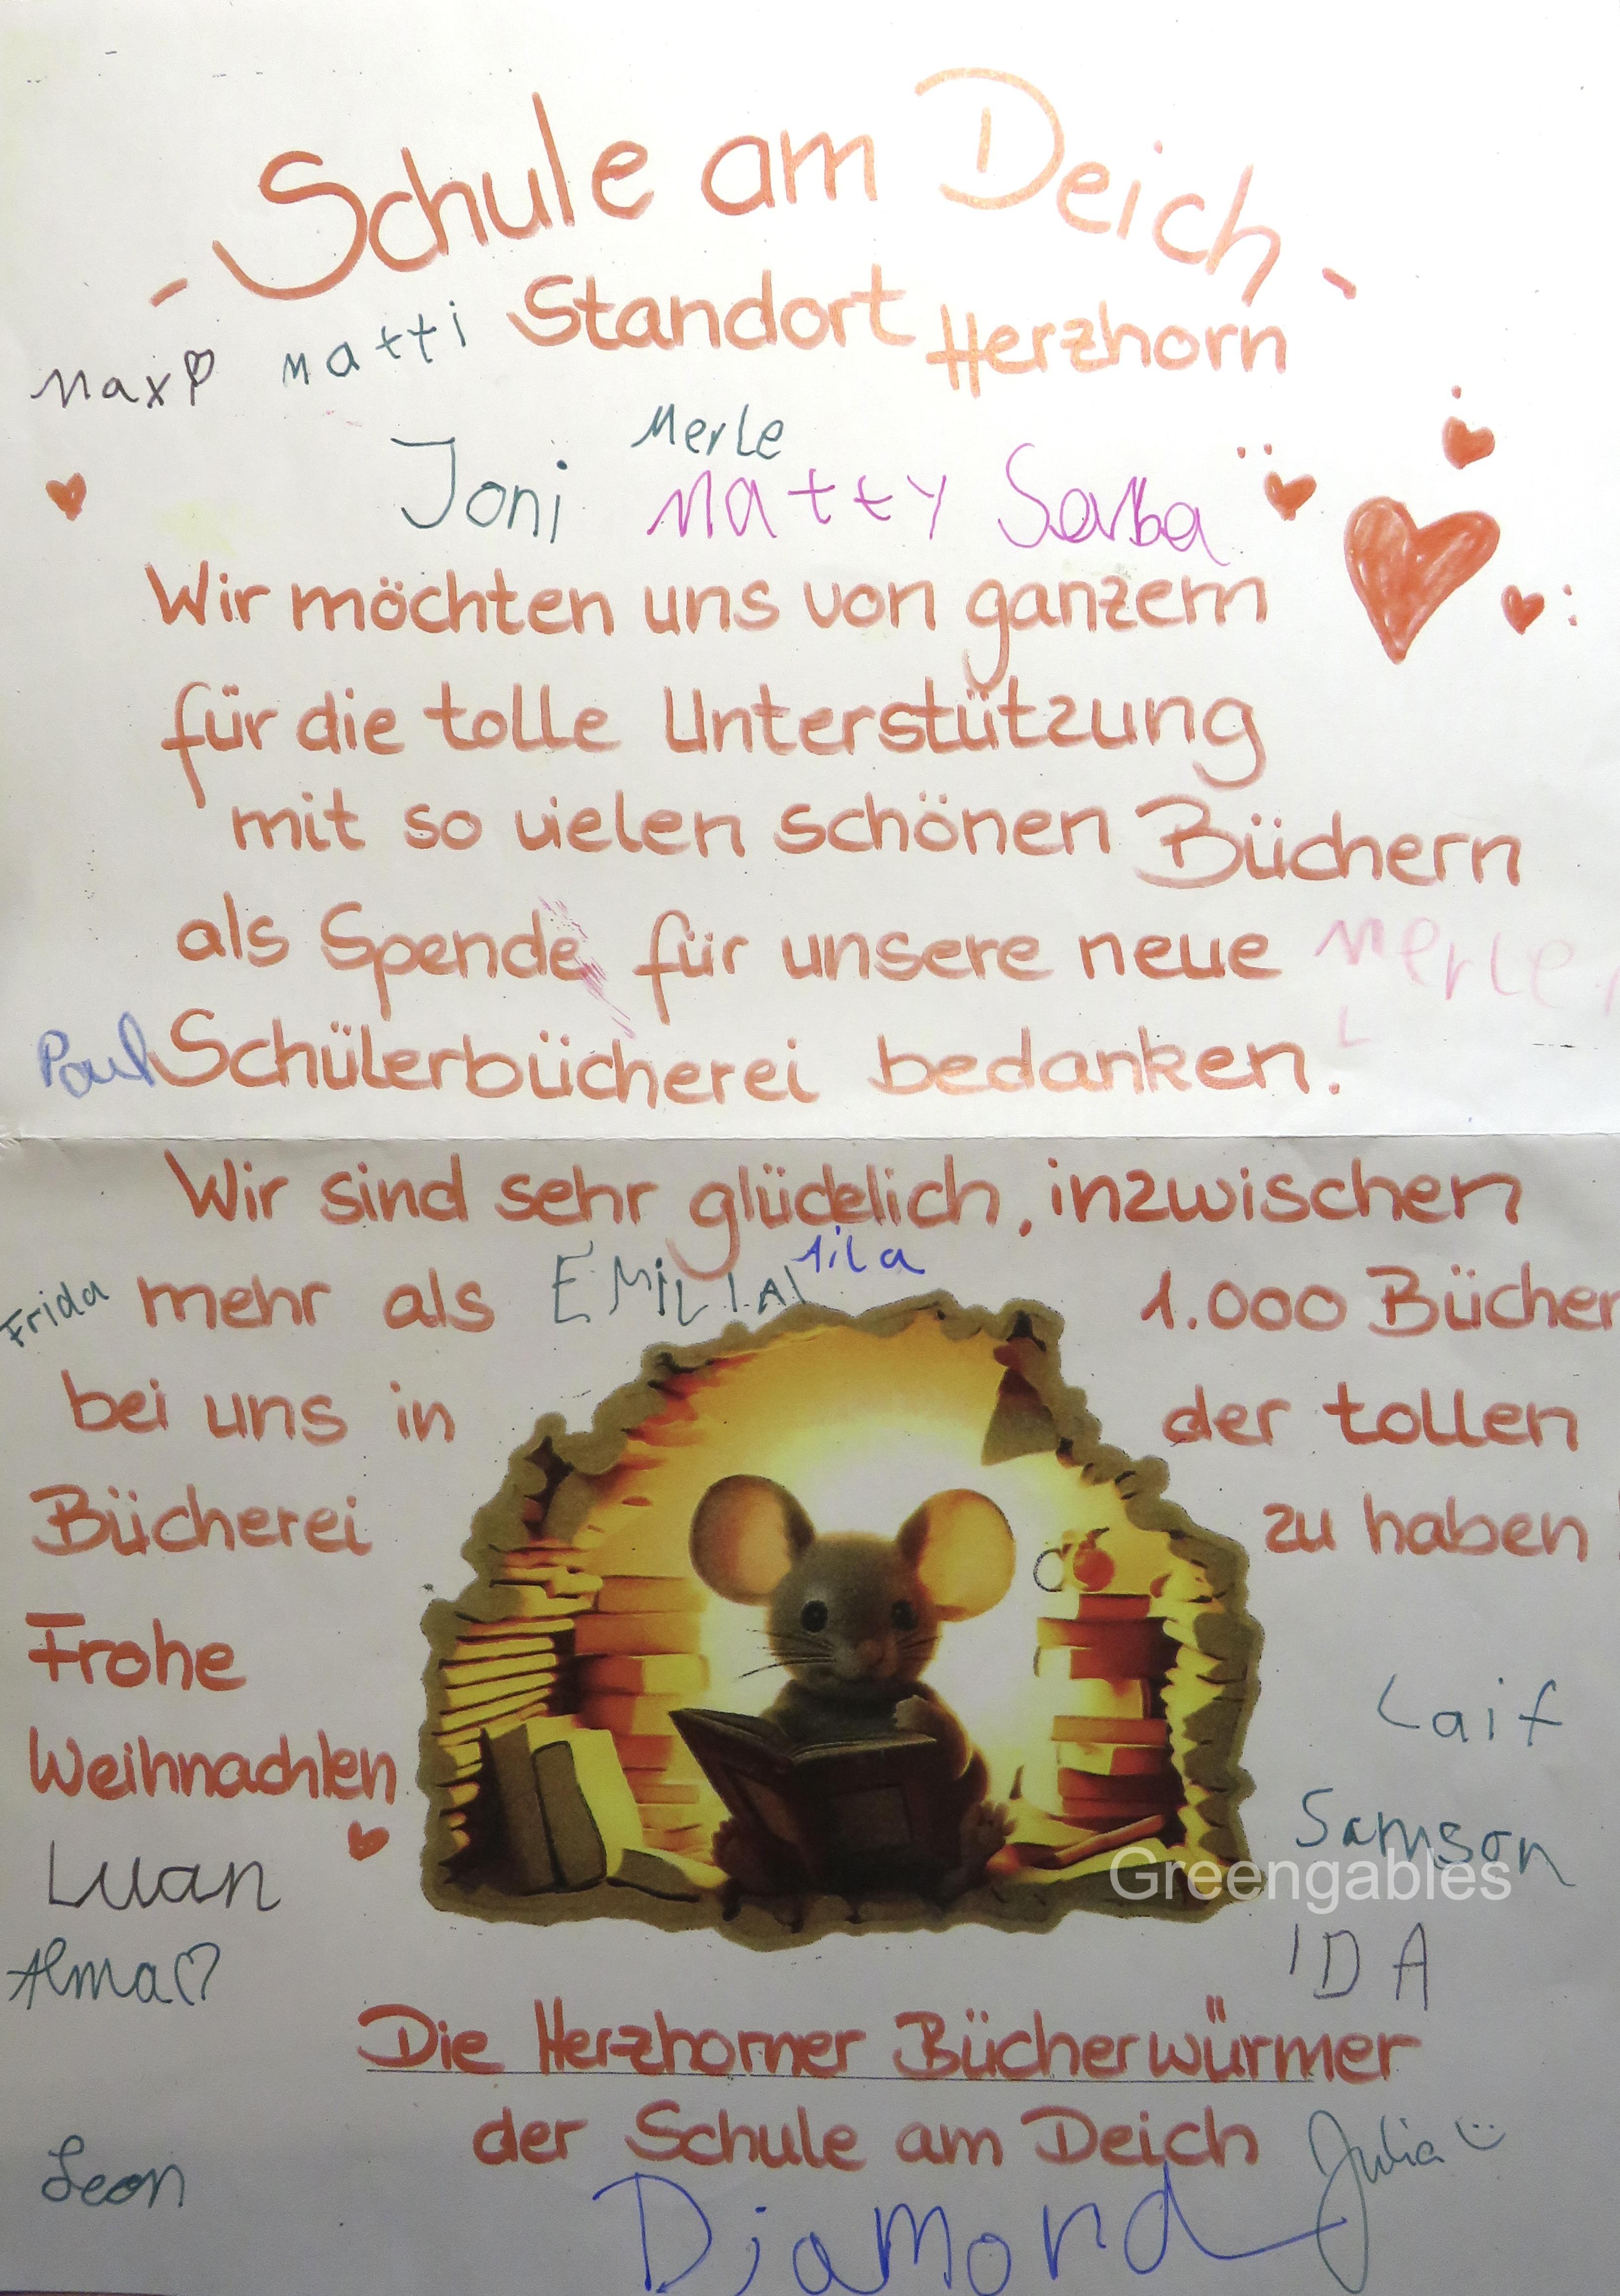 - Schule am Deich -
Standort Herzhorn
Max Matti
Merle
Joni Matty Saba
Wir möchten uns von ganzem
für die tolle Unterstützung
mit so vielen schönen Büchern
als Spende für unsere neue Merle
Paul Schülerbücherei bedanken.
Wir sind sehr glücklich, inzwischen
Frida mehr als EMiLIA 1.000 Bücher
bei uns in der tollen
Bücherei zu haben
Frohe
Weihnachten
Laif
Samson
Greengables
Luan
IDA
Alma
Die Herzhorner Bücherwürmer
der Schule am Deich
Julia
Leon
Diamond